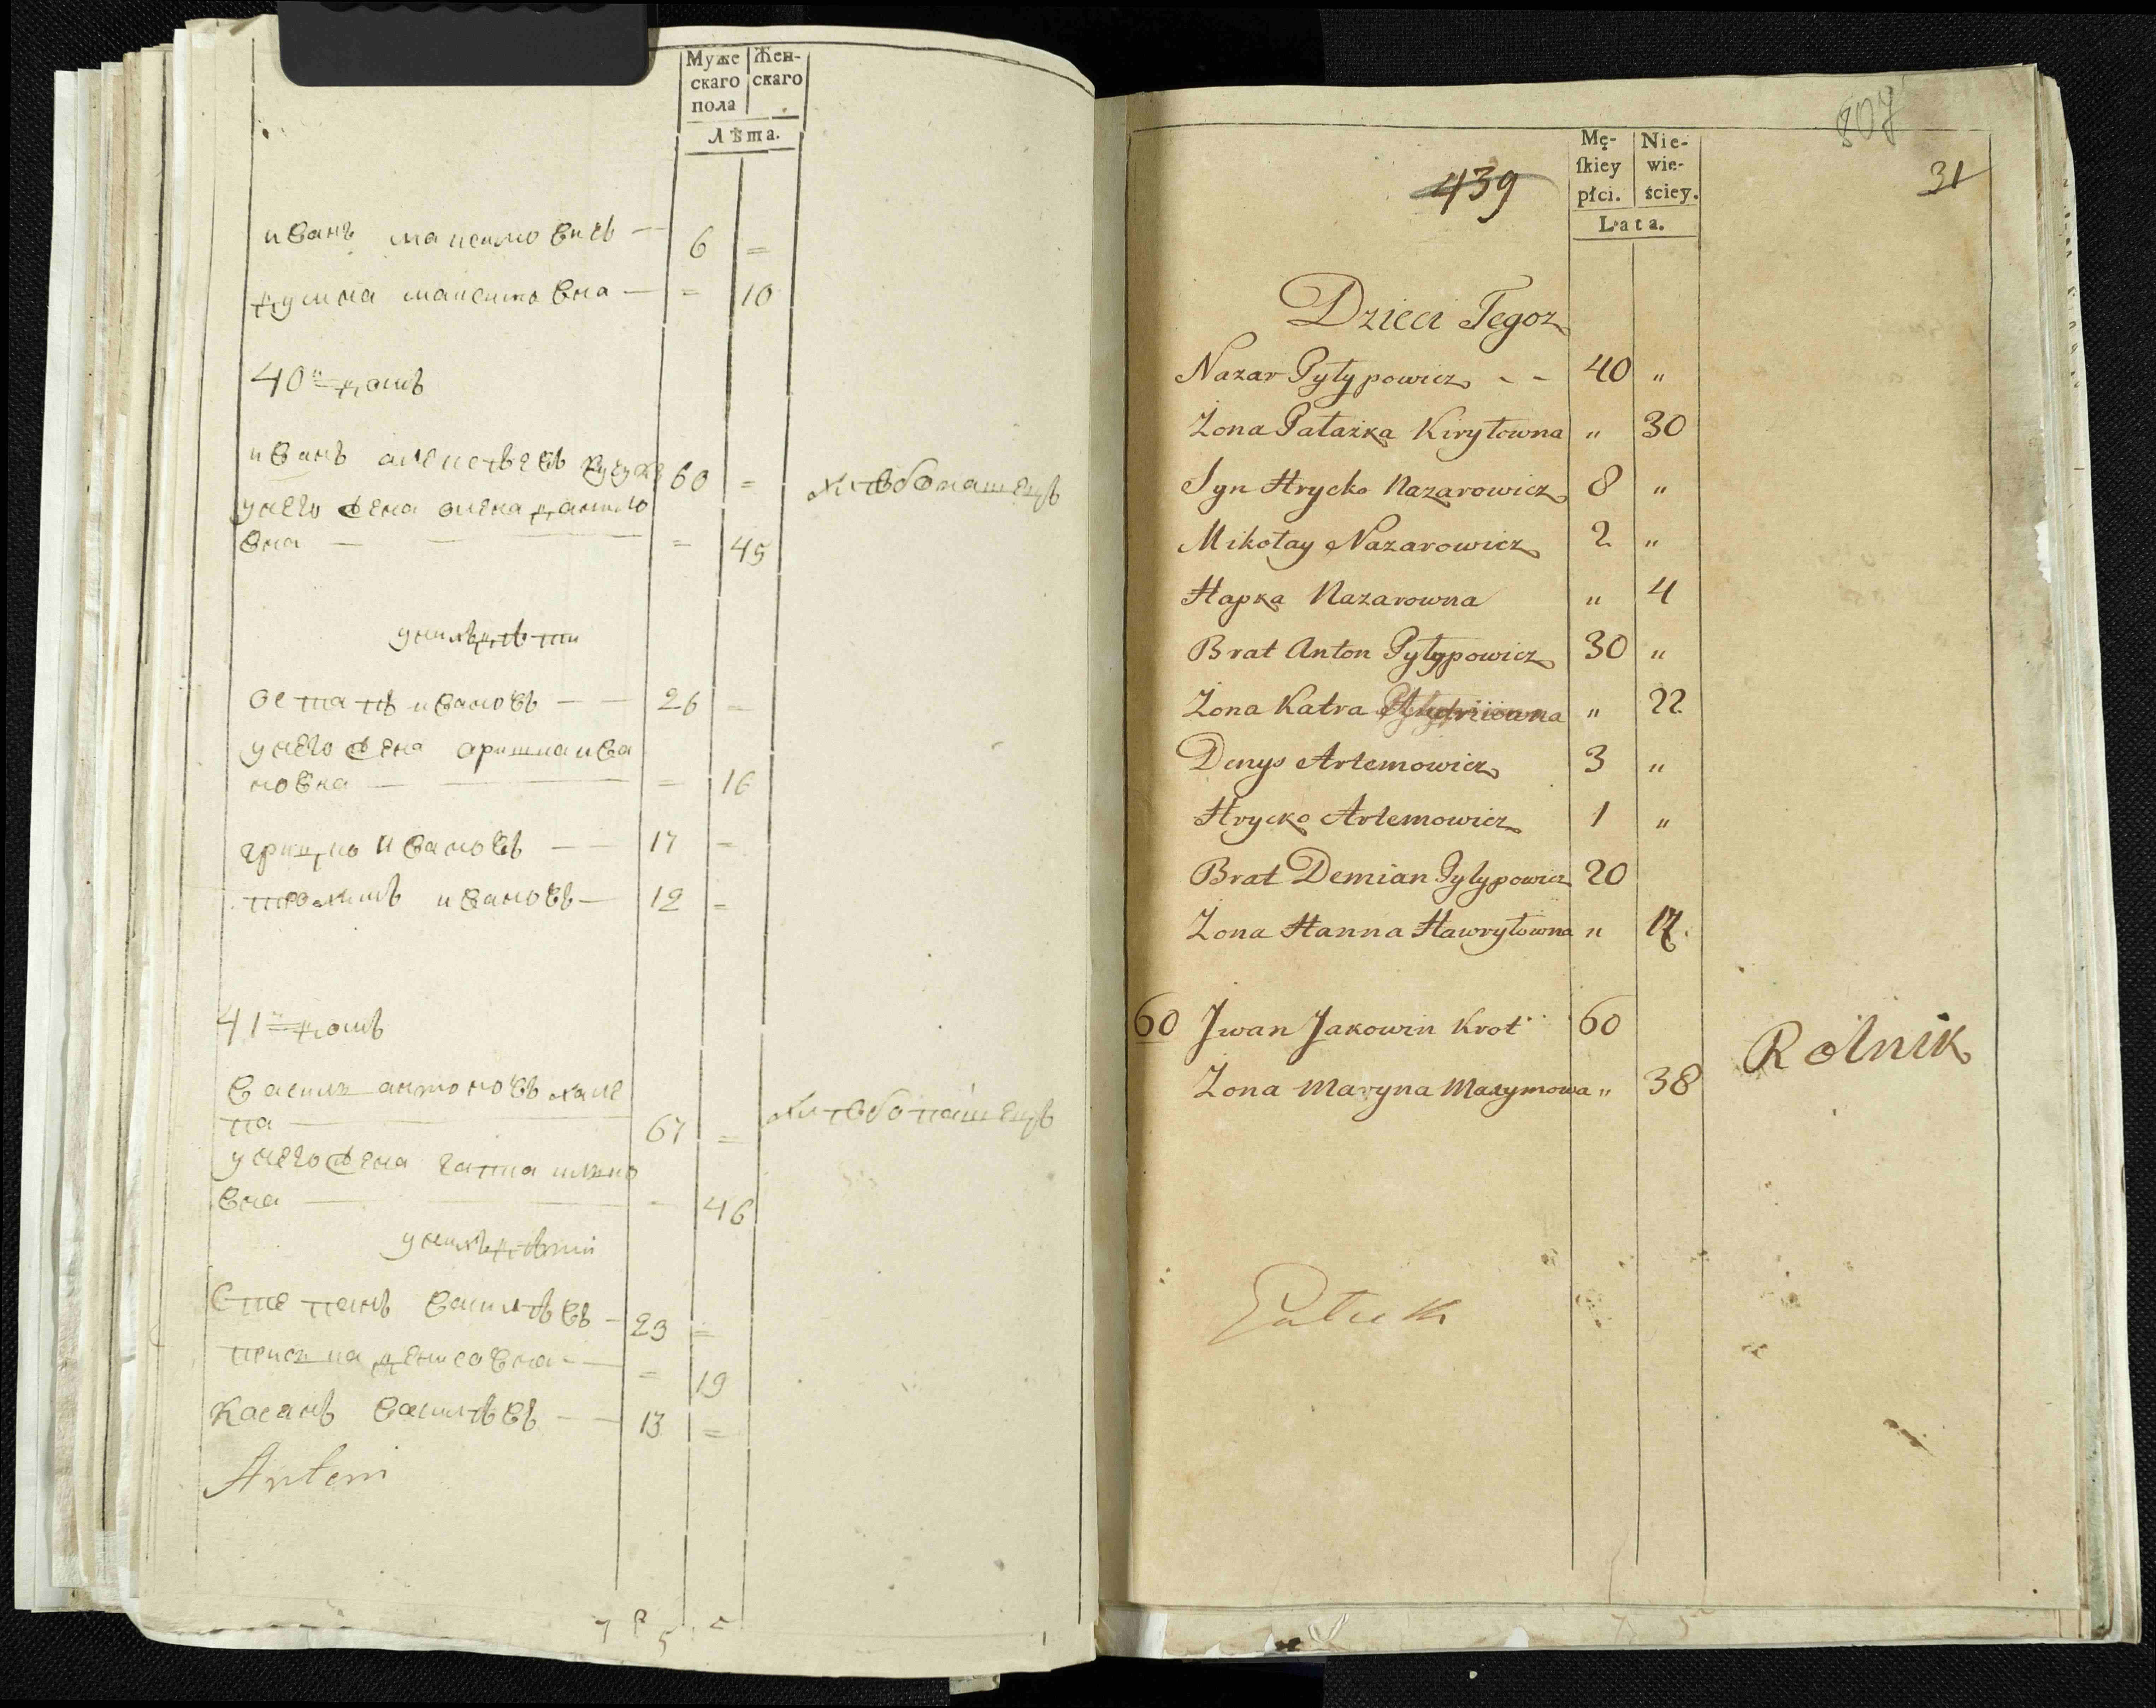 Муже
скаго
пола
Жен-
скаго
Лѣта.
иванъ максимовичъ — 6 =
думна максимовна — = 10
40й домъ
иванъ алексѣевъ 60 = хлѣбопашецъ
унего жена олена данило
вна — = 45
унихъ дѣти
остапъ ивановъ — — 26 =
унего жена аришка ива
новна — = 16
грицко Ивановъ — — 17 =
трохимъ ивановъ — 12 =
41й домъ
василь антоновъ
па — 67 = хлѣбопашецъ
унего жена гапка
вна — = 46
унихъ дѣти
Степанъ васильевъ — 23 =
приська денисовна — = 19
Касанъ васильевъ — — 13 =
Antoni
807
31
439
Mę-
ſkiey
płci.
Nie-
wie-
ściey.
Lata.
Dzieci Tegoz
Nazar Pyłypowicz - - 40 "
Żona Pałażka Kiryłowna " 30
Syn Hrycko Nazarowicz 8 "
Mikołay Nazarowicz 2 "
Hapka Nazarowna " 4
Brat Anton Pyłypowicz 30 "
Żona Katra " 22
Denys Artemowicz 3 "
Hrycko Artemowicz 1 "
Brat Demian Pyłypowicz 20
Żona Hanna Hawryłowna " 17.
60 Jwan Jakowin Krot 60
Rolnik
Żona Maryna Maxymowa " 38